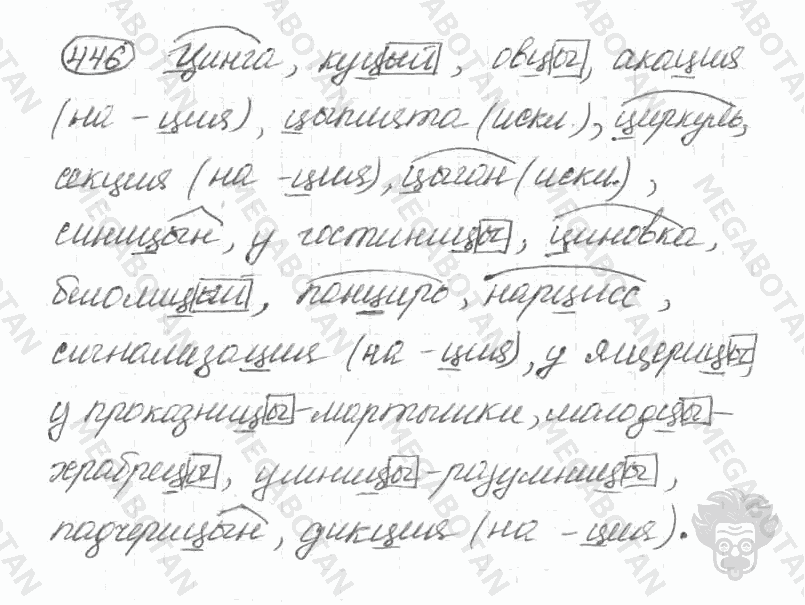 446 Цинга, куцый, овцы, акация
(на -ция), цыплята (искл.), циркуль,
секция (на -ция), цыган (искл.),
синицын, у гостиницы, циновка,
беломицый, панцирь, нарцисс,
сигнализация (на -ция), у ящерицы
у проказницы-мартышки, молодцы-
храбрецы, умницы-разумницы,
падчерицын, дикция (на -ция).
MEGABOTAN